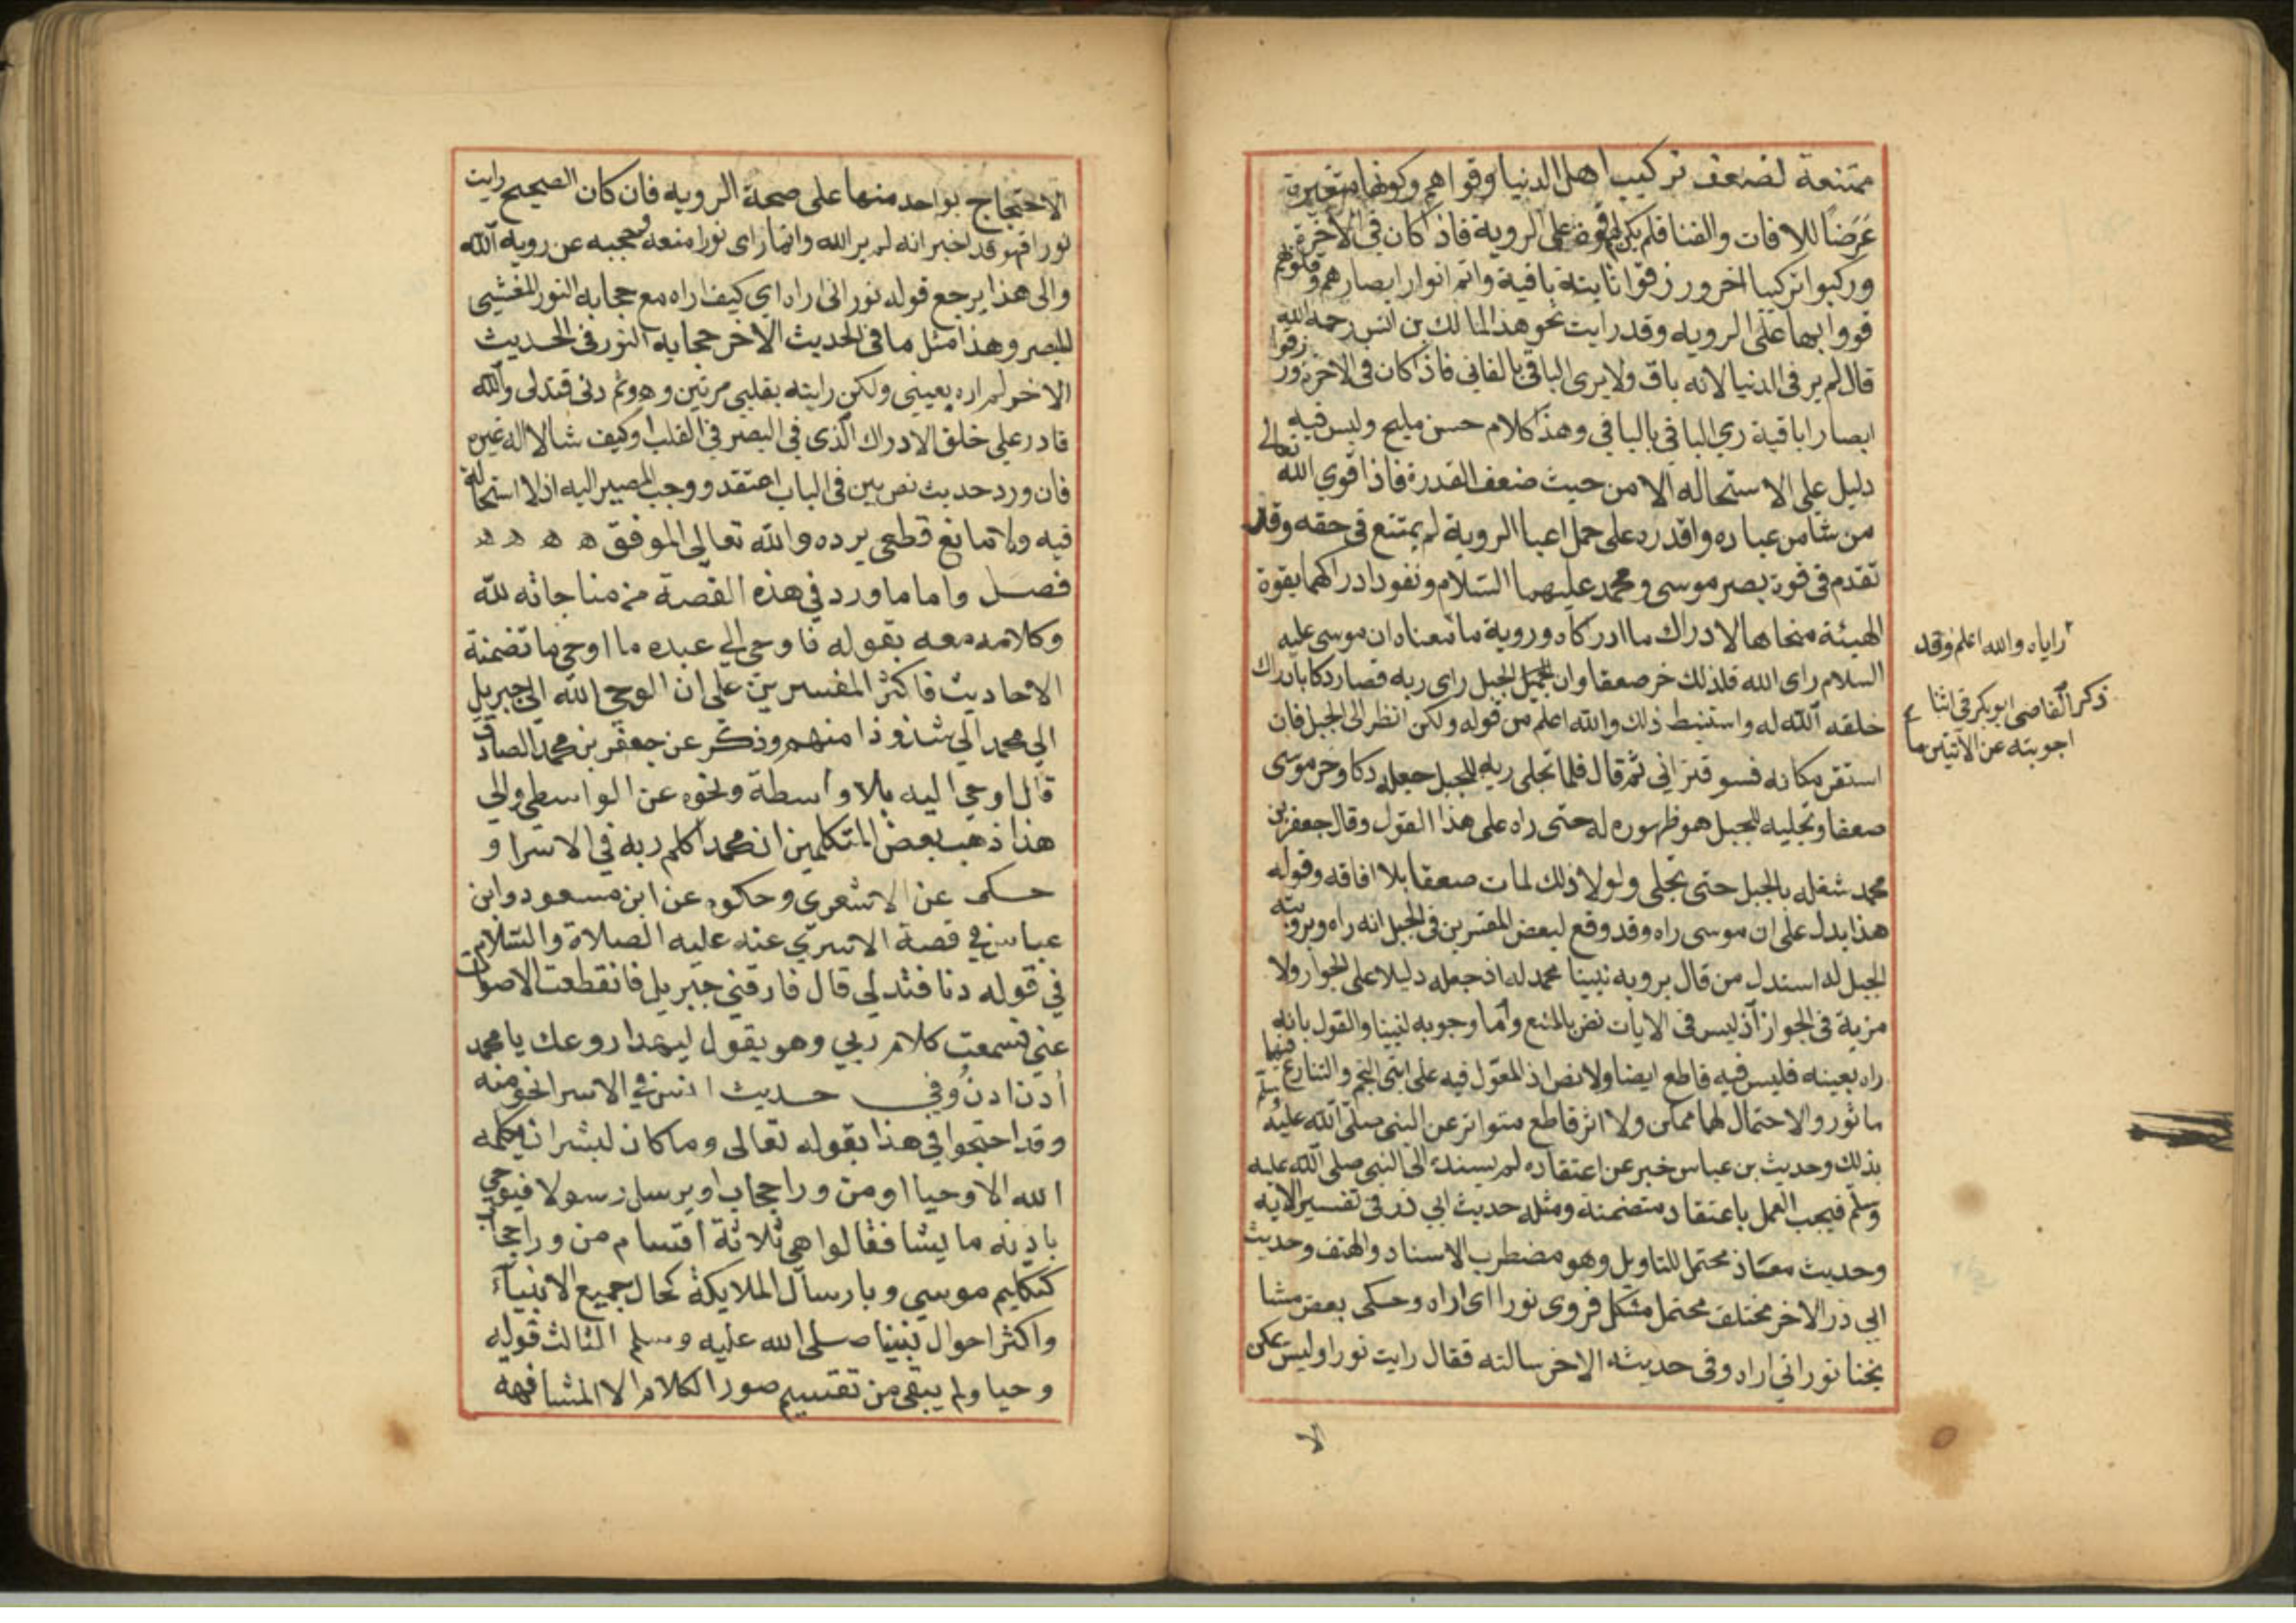 ممتنعة لضعف تركيب اهل الدنيا وقواهم وكونها متغيرة
عَرَضًا للافات والفنا فلم يكن لهم قوة على الروية فاذا كان في الاخرة
وركبوا تركيبا اخر ورزقوا قوا ثابتة باقية واتم انوار ابصارهم وقلوبهم
قووا بها على الرويه وقد رايت نحو هذا لمالك بن انس رحمه الله
قال لم ير في الدنيا لانه باق ولا يرى الباقي بالفاني فاذا كان في الاخرة ورزقوا
ابصارا باقية ري الباقي بالباقي وهذا كلام حسن مليح وليس فيه
دليل على الاستحاله الا من حيث ضعف القدرة فاذا قوي الله تعالى
من شا من عباده واقدره على حمل اعبا الروية لم يمتنع في حقه وقد
تقدم في قوة بصر موسى ومحمد عليهما السلام ونفود ادراكهما بقوة
الهيئة منحاها لادراك ما ادركاه وروية ما
راياه والله اعلم وقد
ذكر القاضي ابو بكر في اثنا
اجوبته عن الايتين ما
معناه ان موسى عليه
السلام راى الله فلذلك خر صعقا وان الجبل راى ربه فصار دكا بادراك
خلقه الله له واستنبط ذلك والله اعلم من قوله ولكن انظر الى الجبل فان
استقر مكانه فسوف تراني ثم قال فلما تجلى ربه للجبل جعله دكا وخر موسى
صعقا وتجليه للجبل هو ظهوره له حتى راه على هذا القول وقال جعفر بن
محمد شغله بالجبل حتى تجلى ولولا ذلك لمات صعقا بلا افاقه وقوله
هذا يدل على ان موسى راه وقد وقع لبعض المفسرين في الجبل انه راه وبروية
الجبل له استدل من قال بروية نبينا محمد له اذ جعله دليلا على الجواز ولا
مرية في الجواز اذ ليس في الايات نص بالمنع واما وجوبه لنبينا والقول بانه
راه بعينه فليس فيه قاطع ايضا ولا نص اذ المعوّل فيه على ايتي النجم والتنازع فيها
ماثور والاحتمال لهما ممكن ولا اثر قاطع متواتر عن النبي صلى الله عليه وسلم
بذلك وحديث بن عباس خبر عن اعتقاده لم يسنده الى النبي صلى الله عليه
وسلم فيجب العمل باعتقاد متضمنة ومثله حديث ابي ذر في تفسير الايه
وحديث معاذ محتمل للتاويل وهو مضطرب الاسناد والمتن وحديث
ابي ذر الاخر مختلف محتمل مشكل فروى نورا اى اراه وحكى بعض مشا
يخنا نوراني اراه وفي حديثه الاخر سالته فقال رايت نورا وليس يمكن
الا
الاحتجاج بواحد منها على صحة الرويه فان كان الصحيح رايت
نورا فهو قد اخبر انه لم ير الله وانما راى نورا منعه وحجبه عن روية الله
والى هذا يرجع قوله نور انى اراه اي كيف اراه مع حجابه النور المغشي
للبصر وهذا مثل ما في الحديث الاخر حجابه النور في الحديث
الاخر لم اره بعيني ولكن رايته بقلبي مرتين وه وثم دنى فتدلى والله
قادر على خلق الادراك الذى في البصر في القلب او كيف شا لا اله غيره
فان ورد حديث نص بين في الباب اعتقد ووجب المصير اليه اذ لا استحالة
فيه ولا مانع قطعي يرده والله تعالى الموفق ه ه ه ه
فصل واما ما ورد في هذه القصة من مناجاته لله
وكلامه معه بقوله فاوحى الى عبده ما اوحى ما تضمنة
الاحاديث فاكثر المفسرين على ان الوحي الله الى جبريل
الى محمد الي شذوذا منهم وذكر عن جعفر بن محمد الصادق
قال اوحي اليه بلا واسطة ونحوه عن الواسطي والي
هذا ذهب بعض المتكلمين ان محمدا كلم ربه في الاسرا و
حكى عن الاشعرى وحكوه عن ابن مسعود وابن
عباس في قصة الاسري عنه عليه الصلاة والسلام
في قوله دنا فتدلي قال فارقني جبريل فانقطعت الاصوات
عني فسمعت كلام ربي وهو يقول ليهدا روعك يا محمد
أدن ادن وفي حديث انس في الاسرا نحو منه
وقد احتجوا في هذا بقوله تعالى وما كان لبشر ان يكلمه
الله الا وحيا او من ورا حجاب او يرسل رسولا فيوحي
باذنه ما يشا فقالوا هي ثلاثة اقسام من ورا حجاب
كتكليم موسي وبارسال الملايكة كحال جميع الانبياء
واكثر احوال نبينا صلى الله عليه وسلم الثالث قوله
وحيا ولم يبقى من تقسيم صور الكلام الا المشافهه